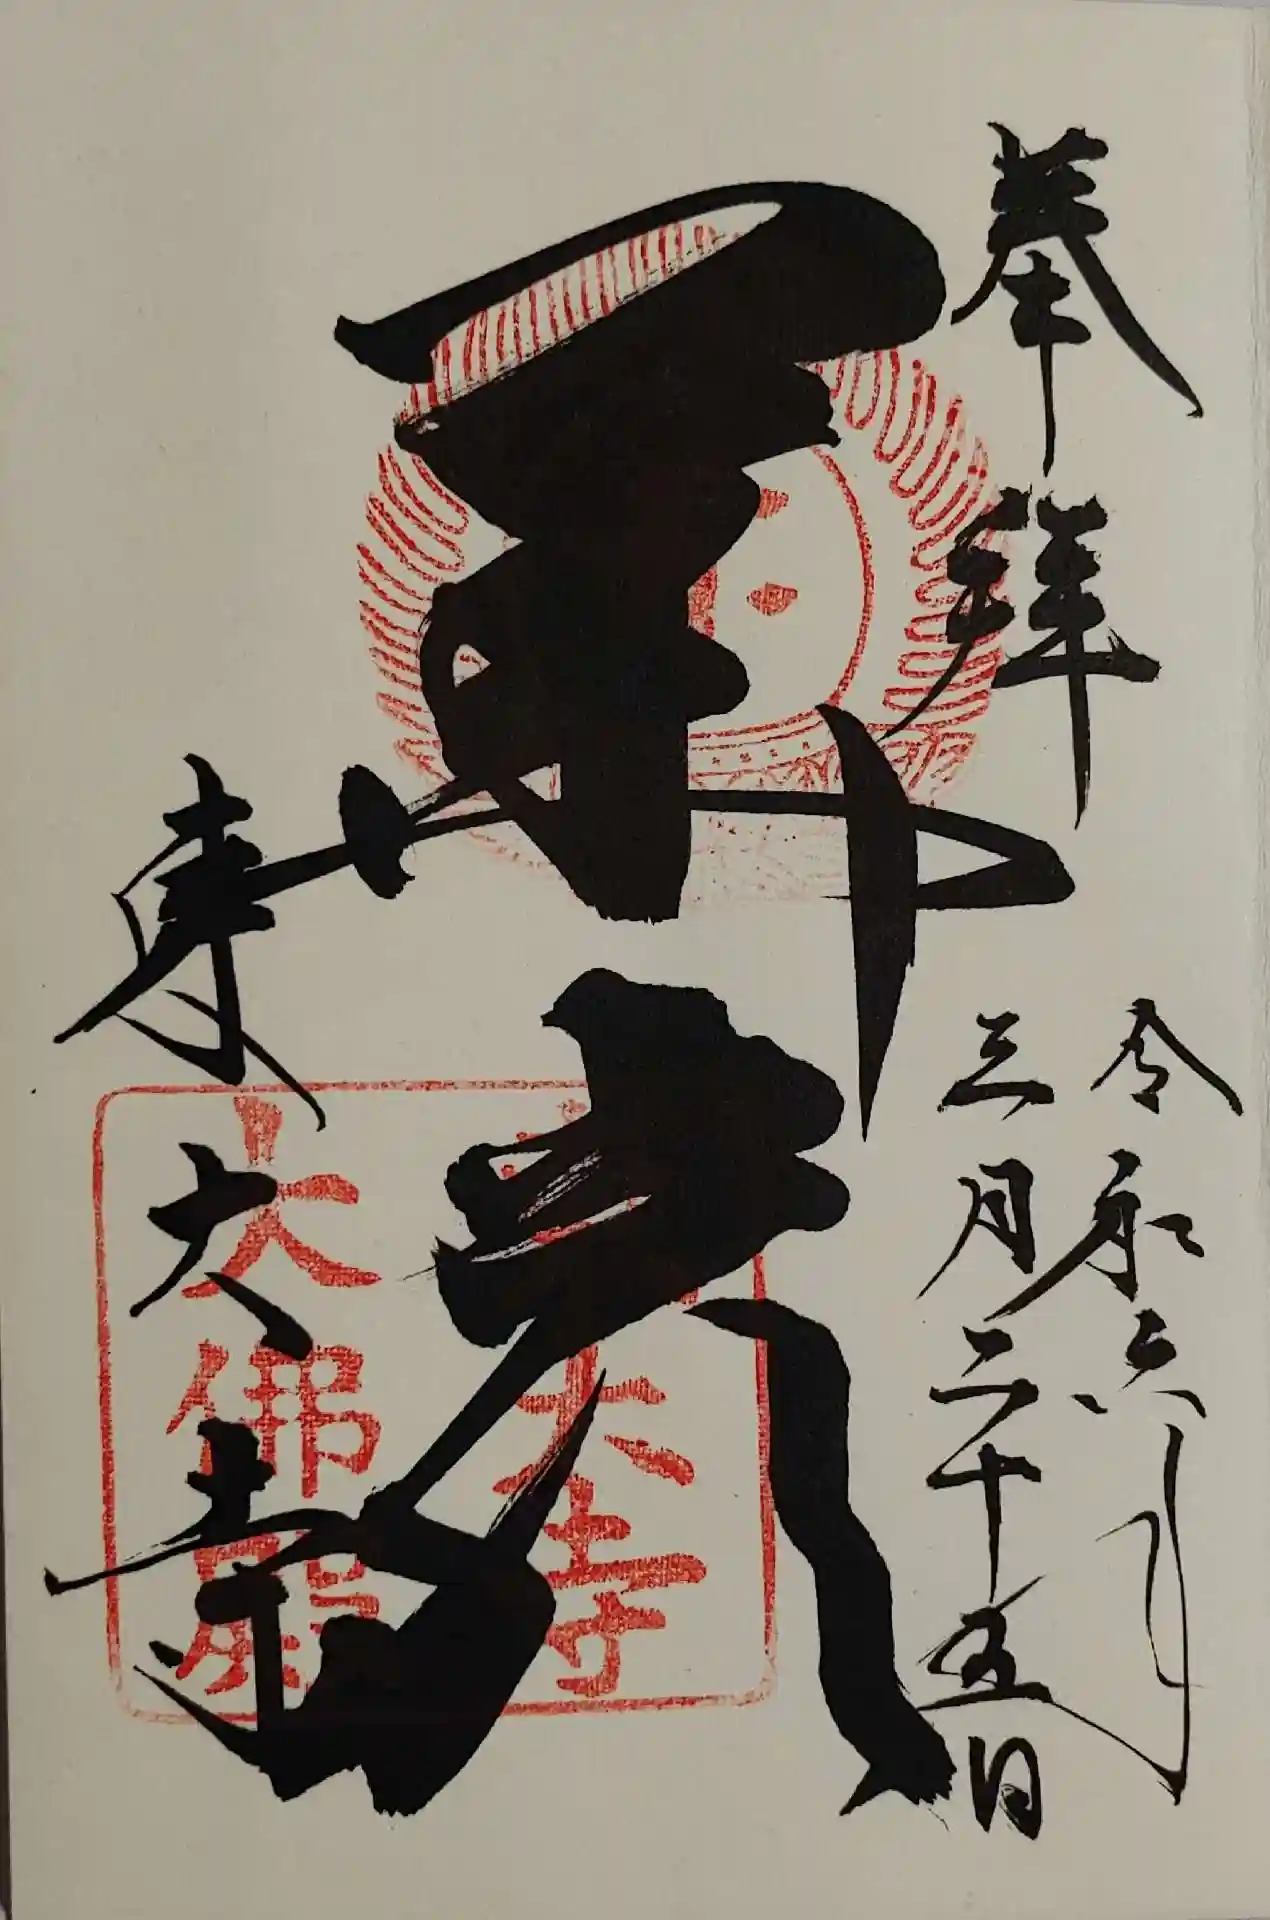 奉拝
令和六年
三月二十五日
華厳
東大寺
東大寺
大佛殿